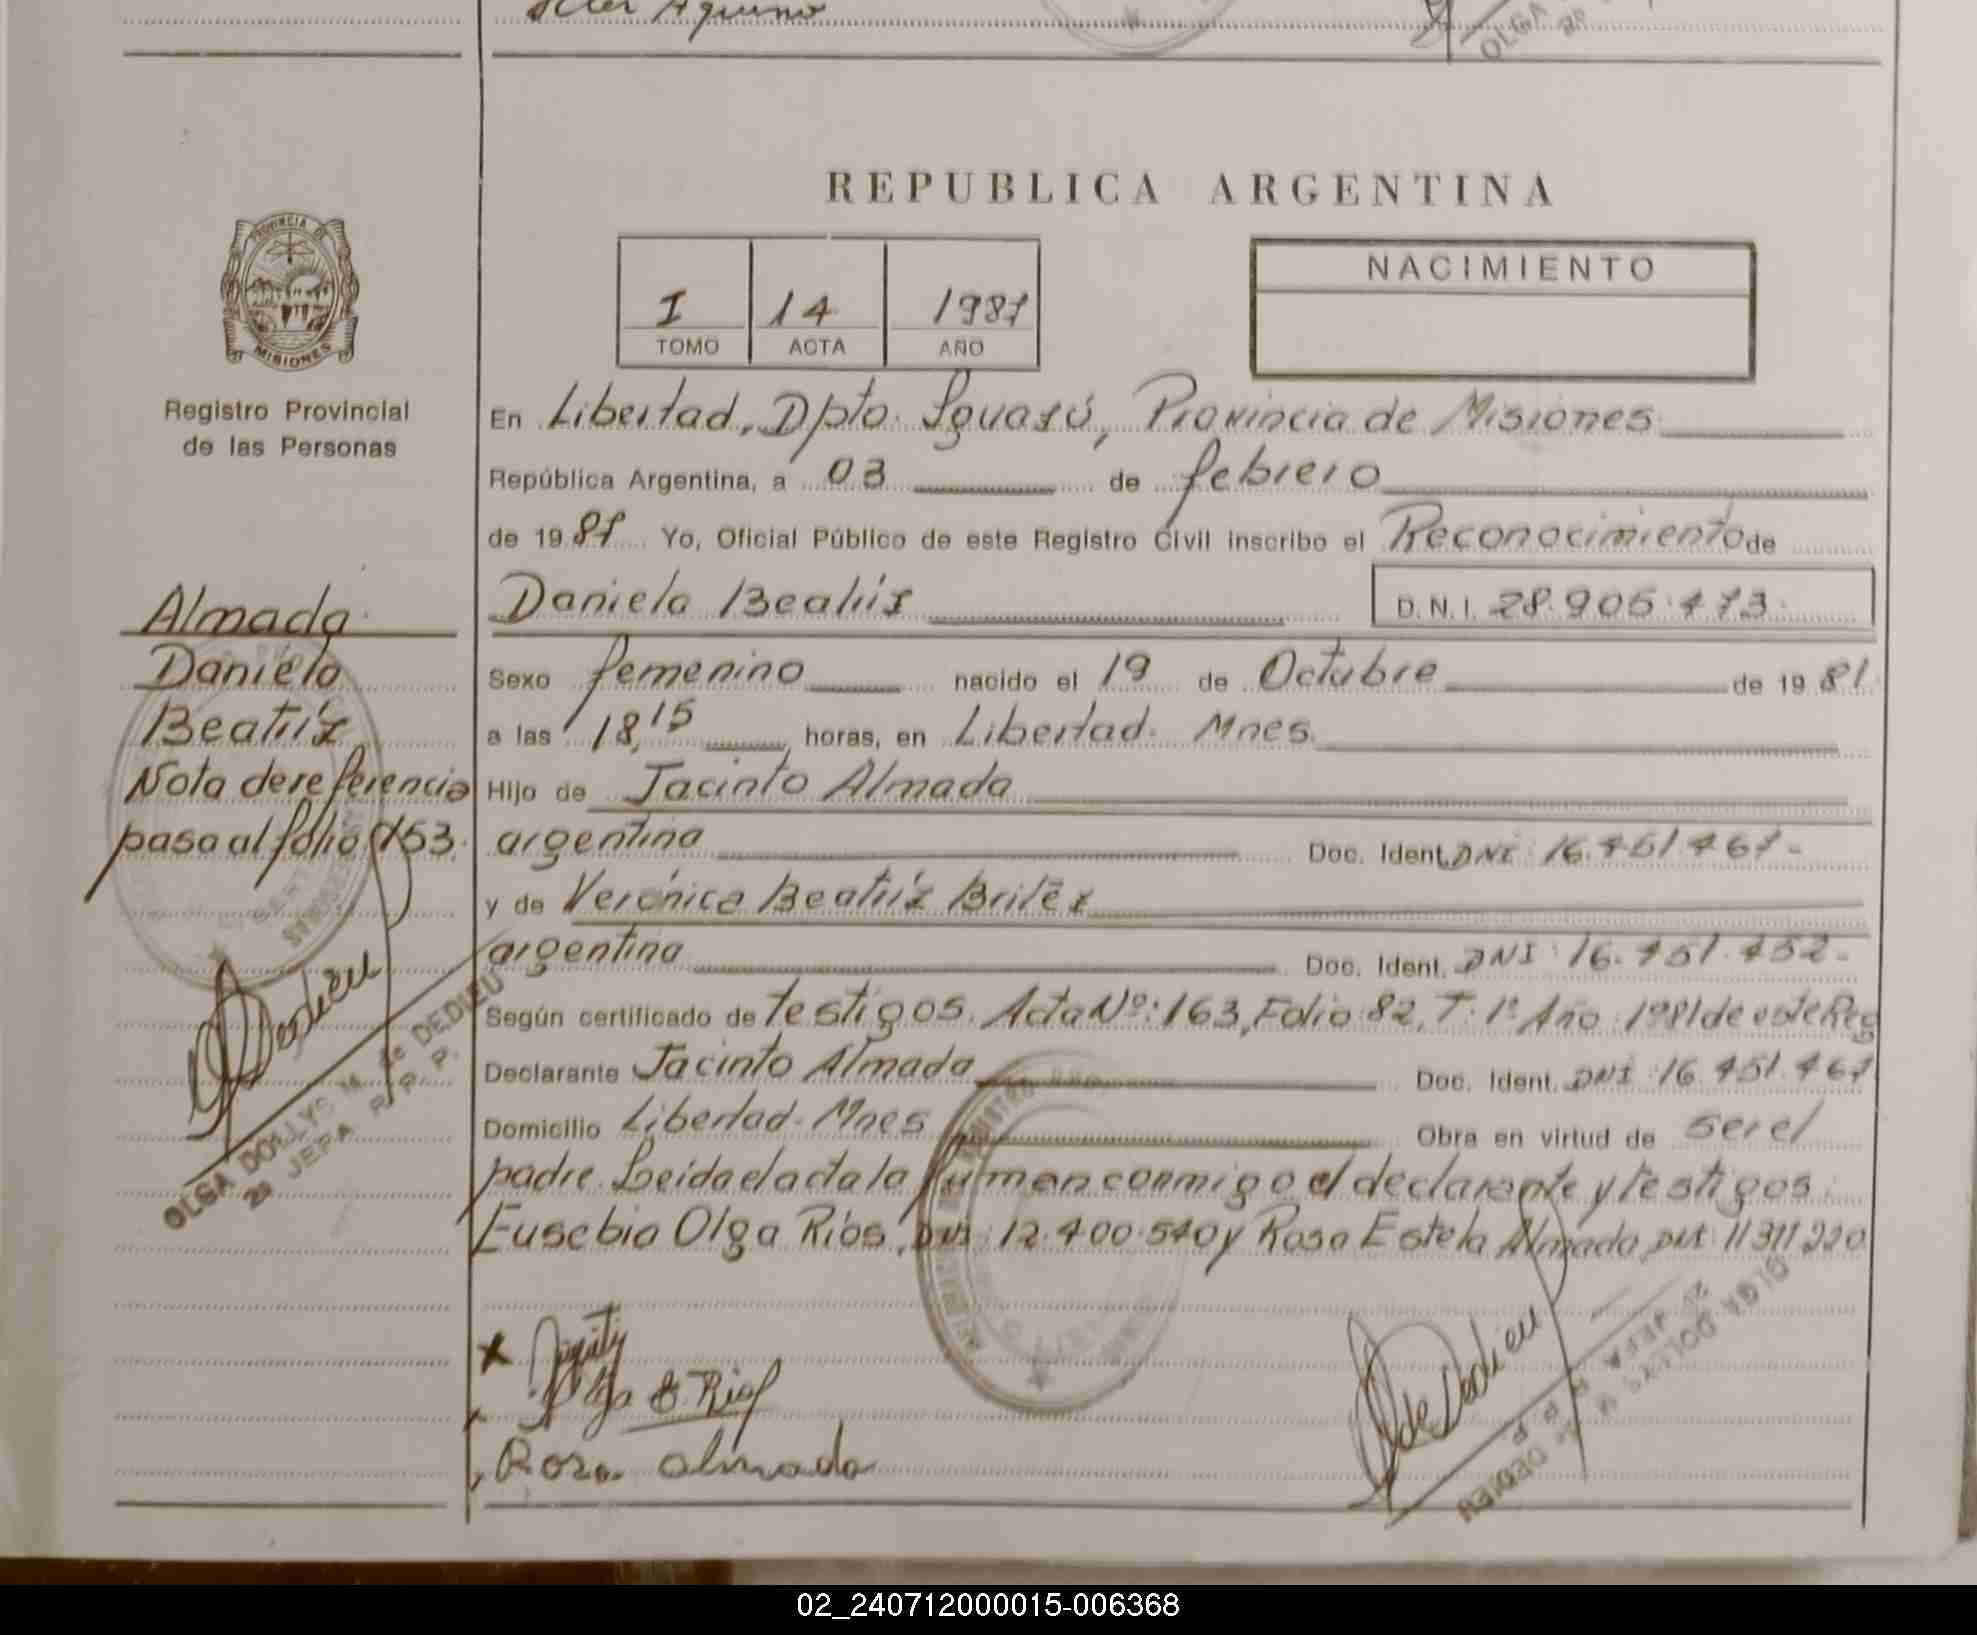 REPUBLICA ARGENTINA
PROVINCIA DE
MISIONES
Registro Provincial
de las Personas
I 14 1987
TOMO ACTA AÑO
NACIMIENTO
En Libertad, Dpto. Iguazú, Provincia de Misiones
República Argentina, a 03 de febrero
de 1987 Yo, Oficial Público de este Registro Civil inscribo el Reconocimiento de
Daniela Beatríz D.N.I. 28.905.473
Almada
Daniela
Beatríz
Nota de referencia
pasa al folio 153.
Sexo femenino nacido el 19 de Octubre de 1981
a las 18,15 horas, en Libertad. Mnes.
Hijo de Jacinto Almada
argentina Doc. Ident. DNI 16.451.467-
y de Verónica Beatríz Britez
argentina Doc. Ident. DNI: 16.451.452-
Según certificado de testigos. Acta Nº: 163, Folio 82, T. 1º Año 1981 de este Reg
Declarante Jacinto Almada Doc. Ident. DNI 16.451.467
Domicilio Libertad. Mnes Obra en virtud de ser el
padre. Leída el acta la firman conmigo el declarante y testigos:
Eusebia Olga Ríos, DNI: 12.400.540 y Rosa Estela Almada DNI 11311220
de Dedieu
OLGA DOLLYS M. de DEDIEU
2a JEFA R. P. P.
Olga E. Rios
Rosa almada
de Dedieu
OLGA DOLLYS M. de DEDIEU
2a JEFA R. P. P.
02_240712000015-006368